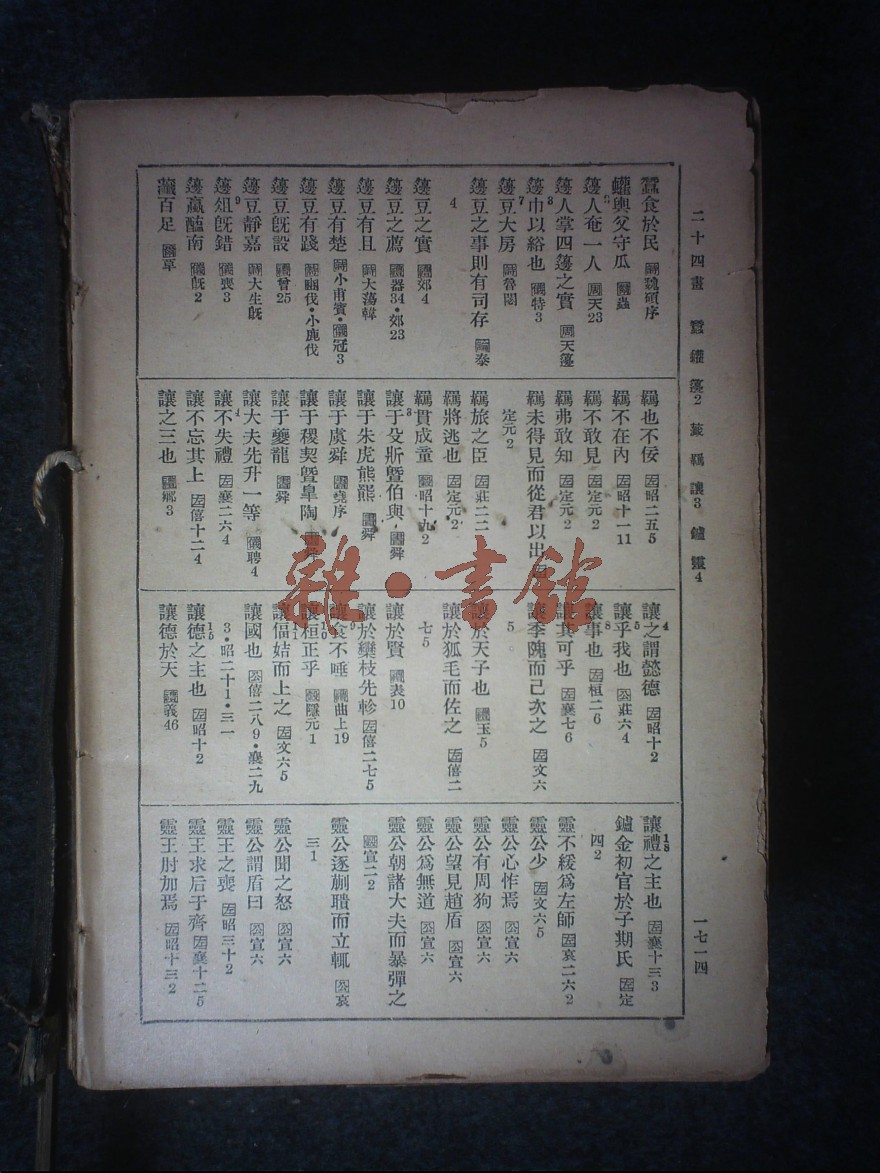 二十四畫 蠶 蠸 籩2 鼓 羈 讓3 鑪 靈4
一七一四
蠶食於民 詩魏碩序
蠸輿父守瓜 爾蟲
籩人奄一人 周天23
籩人掌四籩之實 周天籩
籩巾以綌也 儀特3
籩豆大房 詩魯閟
籩豆之事則有司存 論泰
4
籩豆之實 禮郊4
籩豆之薦 禮器34・郊23
籩豆有且 詩大蕩韓
籩豆有楚 詩小甫賓・儀冠3
籩豆有踐 詩豳伐・小鹿伐
籩豆旣設 禮曾25
籩豆靜嘉 詩大生旣
籩俎旣錯 儀喪3
籩蠃醢南 儀旣2
百足 爾草
羈也不佞 左昭二五5
羈不在內 左昭十一11
羈不敢見 左定元2
羈弗敢知 左定元2
羈未得見而從君以出 左
定元2
羈旅之臣 左莊二二
羈將逃也 左定元2
羈貫成童 穀昭十九2
讓于殳斨曁伯與 書舜
讓于朱虎熊羆 書舜
讓于虞舜 書堯序
讓于稷契曁皐陶 書舜
讓于夔龍 書舜
讓大夫先升一等 儀聘4
讓不失禮 左襄二六4
讓不忘其上 左僖十二4
讓之三也 禮鄉3
讓之謂懿德 左昭十2
讓乎我也 公莊六4
讓事也 左桓二6
讓其可乎 左襄七6
讓季隗而己次之 左文六
5
讓於天子也 禮玉5
讓於狐毛而佐之 左僖二
七5
讓於賢 禮表10
讓於欒枝先軫 左僖二七5
讓食不唾 禮曲上19
讓桓正乎 穀隱元1
讓偪姞而上之 左文六5
讓國也 公僖二八9・襄二九
3・昭二十1・三一
讓德之主也 左昭十2
讓德於天 禮義46
讓禮之主也 左襄十三3
鑪金初官於子期氏 左定
四2
靈不緩爲左師 左哀二六2
靈公少 左文六5
靈公心怍焉 公宣六
靈公有周狗 公宣六
靈公望見趙盾 公宣六
靈公爲無道 公宣六
靈公朝諸大夫而暴彈之
穀宣二2
靈公逐蒯聵而立輒 公哀
三1
靈公聞之怒 公宣六
靈公謂盾曰 公宣六
靈王之喪 左昭三十2
靈王求后于齊 左襄十二5
靈王肘加焉 左昭十三2
雜・書館